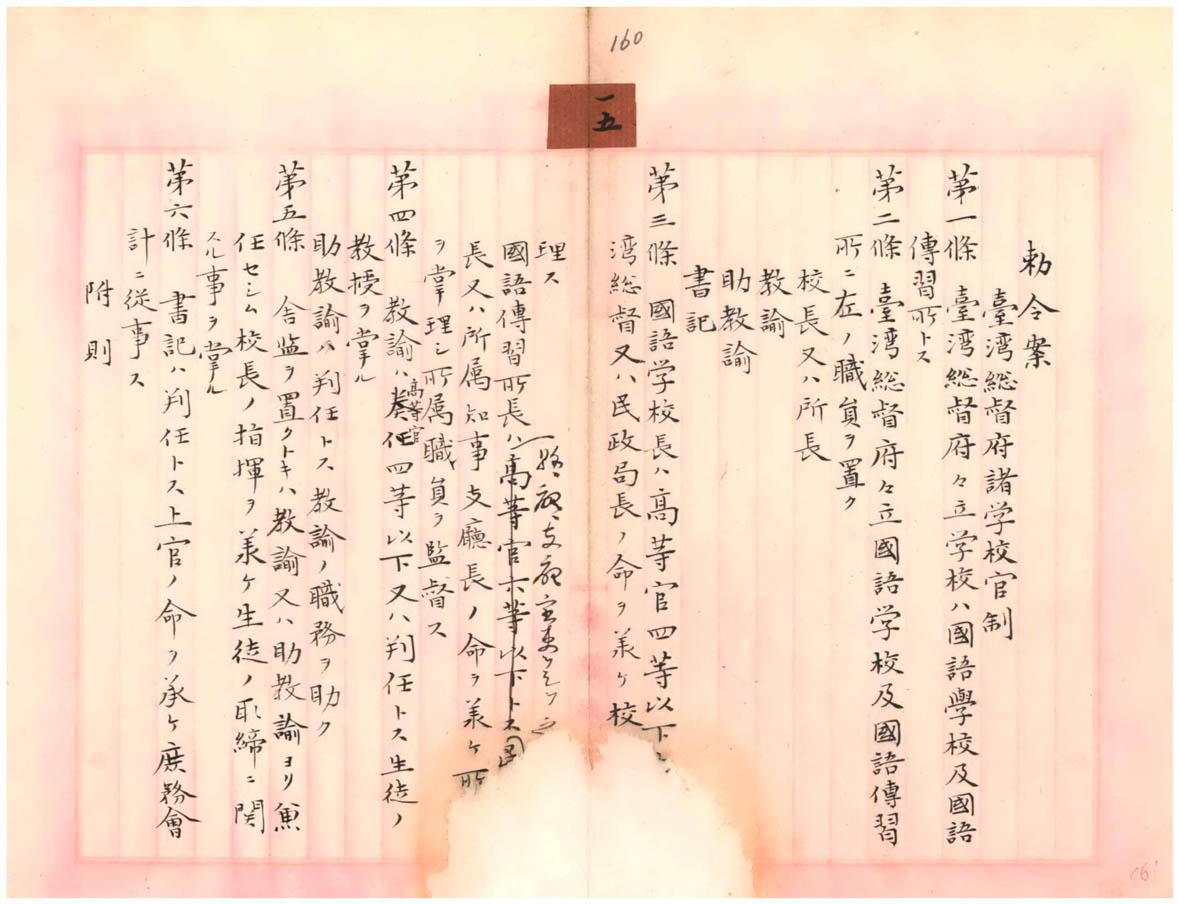 160
一五
勅令案
臺湾総督府諸学校官制
第一條 臺湾総督府々立学校ハ國語學校及國語
傳習所トス
第二條 臺湾総督府々立國語学校及國語傳習
所ニ左ノ職員ヲ置ク
校長又ハ所長
教諭
助教諭
書記
第三條 國語学校長ハ高等官四等以下
湾総督又ハ民政局長ノ命ヲ羕ケ校
理ス
國語傳習所長ハ高等官六等以下トス
長又ハ所属知事支廳長ノ命ヲ羕ケ所
ヲ掌理シ所属職員ヲ監督ス
第四條 教諭ハ奏任四等以下又ハ判任トス生徒ノ
高等官
教授ヲ掌ル
助教諭ハ判任トス教諭ノ職務ヲ助ク
第五條 舎监ヲ置クトキハ教諭又ハ助教諭ヨリ兼
任セシム校長ノ指揮ヲ羕ケ生徒ノ取締ニ関
スル事ヲ掌ル
第六條 書記ハ判任トス上官ノ命ヲ承ケ庶務會
計ニ従事ス
附則
161